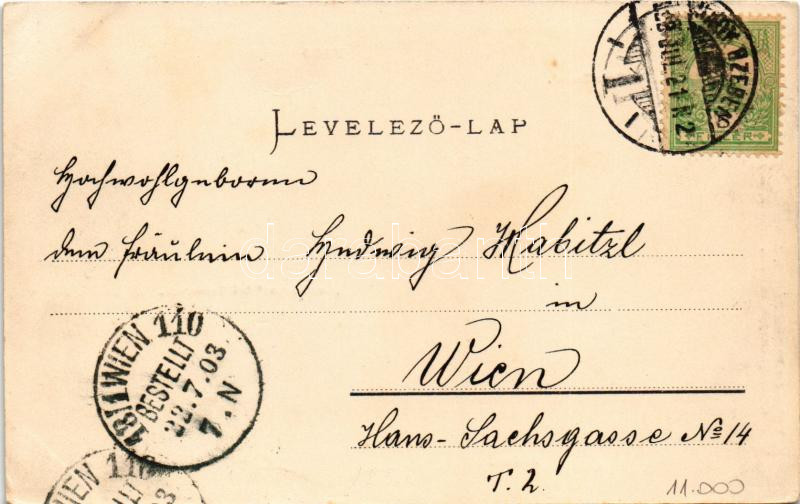 LEVELEZŐ-LAP
Hochwohlgeboren
dem Fräulein Hedwig Habitzl
in
Wien
Hans-Sachsgasse No 14
T. 2.
18/1 WIEN 110
BESTELLT
22.7.03.
7.N
WIEN 110
FILLÉR
darabanth
11.000